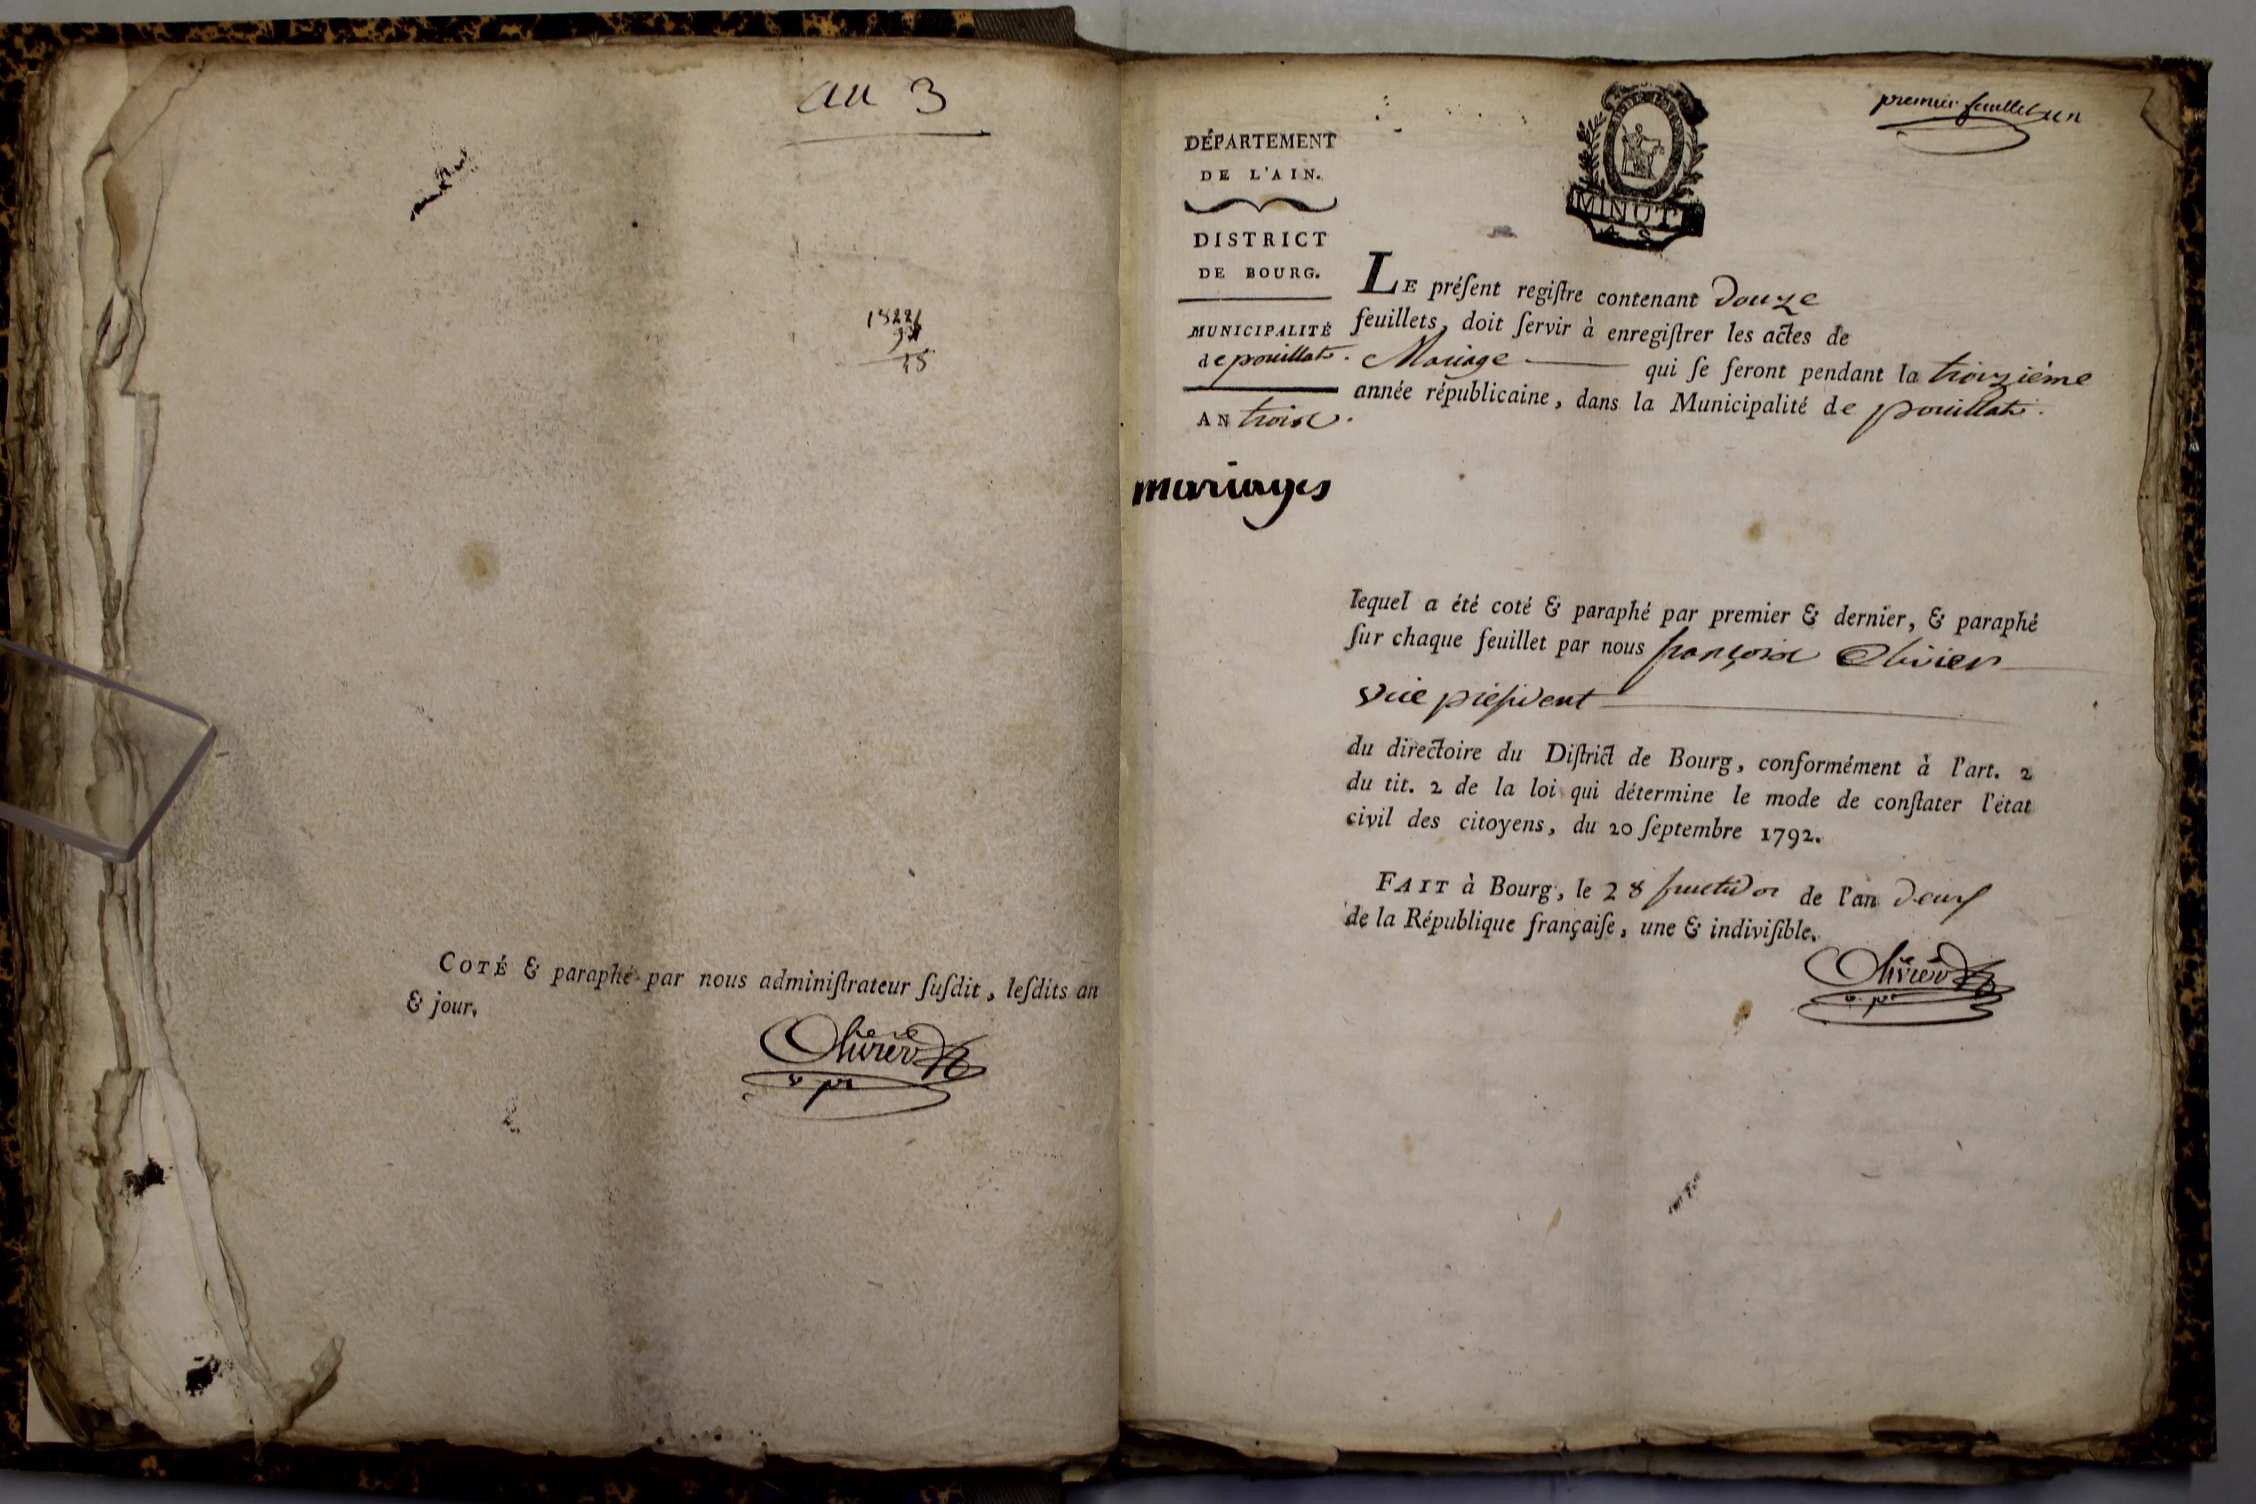 an 3
COTÉ & paraphé par nous adminiſtrateur ſuſdit, leſdits an
& jour.
Olivier
v. pr
premier feuillet un
DÉPARTEMENT
DE L'AIN.
DISTRICT
DE BOURG.
MUNICIPALITÉ
de pouillat.
AN trois.
MINUT
mariages
LE préſent regiſtre contenant Douze
feuillets, doit ſervir à enregiſtrer les actes de
Mariage qui ſe feront pendant la troisziéme
année républicaine, dans la Municipalité de pouillat.
lequel a été coté & paraphé par premier & dernier, & paraphé
ſur chaque feuillet par nous françois Olivier
vice préſident
du directoire du Diſtrict de Bourg, conformément à l'art. 2
du tit. 2 de la loi qui détermine le mode de conſtater l'état
civil des citoyens, du 20 ſeptembre 1792.
FAIT à Bourg, le 28 fructidor de l'an deux
de la République françaiſe, une & indiviſible.
Olivier
v. pr